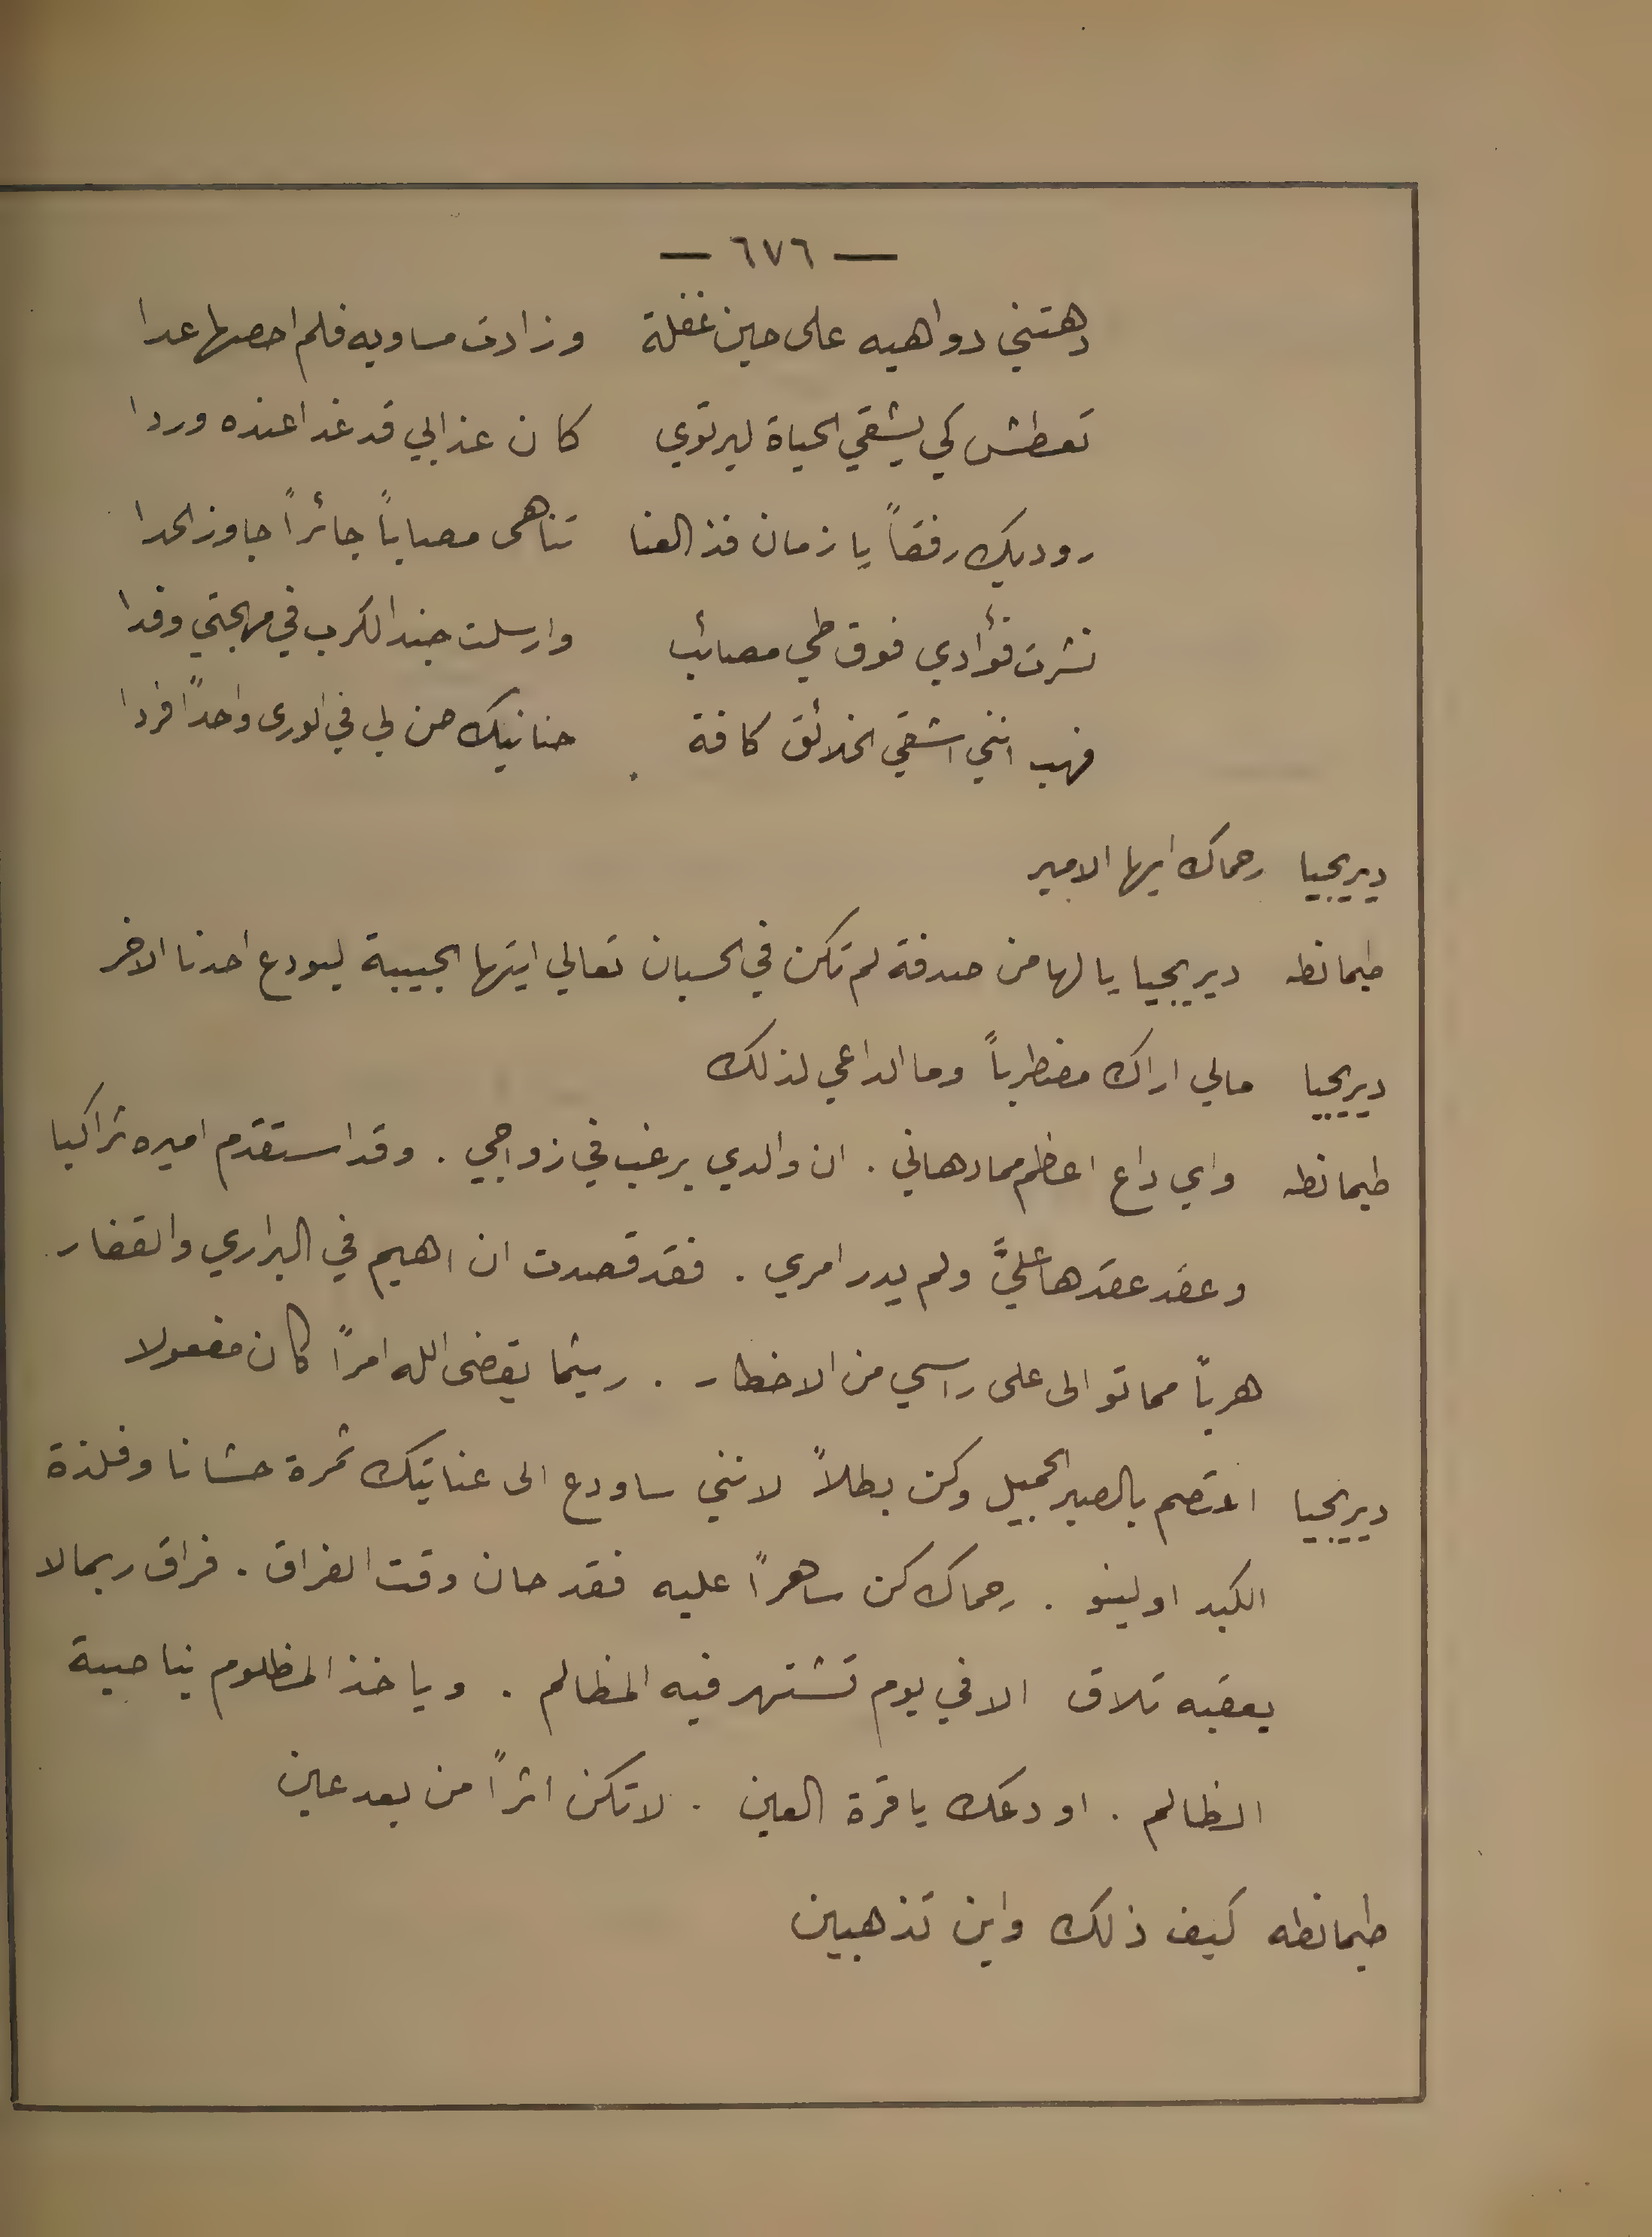 — ٦٧٦ —
دهتني دواهيه على حين غفلة وزادت مساويه فلم احصها عدا
تعطش كي يشقي الحياة ليرتوي كان عذابي قد غدا عنده وردا
رويدك رفقاً يا زمان فذ العنا تناهى مصاباً جائراً جاوز الحدا
نشرت فؤادي فوق طي مصائب وارسلت جند الكرب في مهجتي وفدا
فهب انني اشقي الخلائق كافة حنانيك من لي في الورى واحداً فردا
ديريجيا رحماك ايها الامير
طيمانطه ديريجيا يا لها من صدفة لم تكن في الحسبان تعالي ايتها الحبيبة ليودع احدنا الاخر
ديريجيا مالي اراك مضطرباً وما الداعي لذلك
طيمانطه واي داع اعظم مما دهاني . ان والدي يرغب في زواجي . وقد استقدم اميره تراكيا
وعقد عقدها عليَّ ولم يدر امري . فقد قصدت ان اهيم في البراري والقفار
هرباً مما توالى على راسي من الاخطار . ريثما يقضى الله امراً كان مفعولا
ديريجيا اعتصم بالصبر الجميل وكن بطلاً لانني ساودع الى عنايتك ثمرة حشانا وفلذة
الكبد اولينو . رحماك كن ساهراً عليه فقد حان وقت الفراق . فراق ربما لا
يعقبه تلاق الا في يوم تشتهر فيه المظالم . وياخذ المظلوم بناصية
الظالم . اودعك يا قرة العين . لا تكن اثراً من بعد عين
طيمانطه كيف ذلك واين تذهبين